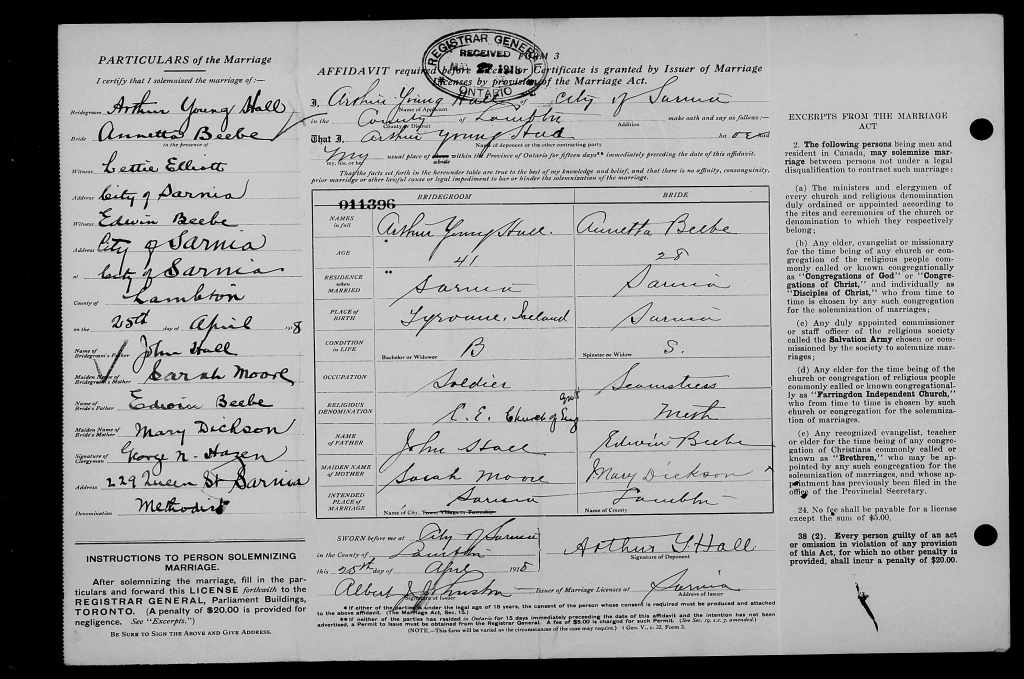 PARTICULARS of the Marriage
I certify that I solemnized the marriage of :—
Bridegroom Arthur Young Hall
Bride Annetta Beebe
in the presence of
Witness Lettie Elliott
Address City of Sarnia
Witness Edwin Beebe
Address City of Sarnia
at City of Sarnia
County of Lambton
on the 25th day of April 1918
Name of Bridegroom's Father John Hall
Maiden Name of Bridegroom's Mother Sarah Moore
Name of Bride's Father Edwin Beebe
Maiden Name of Bride's Mother Mary Dickson
Signature of Clergyman George N. Hazen
Address 229 Queen St Sarnia
Denomination Methodist
INSTRUCTIONS TO PERSON SOLEMNIZING
MARRIAGE.
After solemnizing the marriage, fill in the par-
ticulars and forward this LICENSE forthwith to the
REGISTRAR GENERAL, Parliament Buildings,
TORONTO. (A penalty of $20.00 is provided for
negligence. See "Excerpts.")
BE SURE TO SIGN THE ABOVE AND GIVE ADDRESS.
REGISTRAR GENERAL
RECEIVED
1918
ONTARIO
FORM 3
AFFIDAVIT required before License or Certificate is granted by Issuer of Marriage
Licenses by provision of the Marriage Act.
I, Arthur Young Hall of City of Sarnia
Name of Applicant
in the County of Lambton make oath and say as follows:—
County or District Addition
That I, Arthur Young Hall
Name of deponent or the other contracting party
My usual place of abode within the Province of Ontario for fifteen days** immediately preceding the date of this affidavit.
my, his, or her
That the facts set forth in the hereunder table are true to the best of my knowledge and belief, and that there is no affinity, consanguinity,
prior marriage or other lawful cause or legal impediment to bar or hinder the solemnization of the marriage.
011396 BRIDEGROOM BRIDE
NAMES in full Arthur Young Hall. Annetta Beebe
AGE 41 28
RESIDENCE when MARRIED Sarnia Sarnia
PLACE OF BIRTH Tyrone, Ireland Sarnia
CONDITION in LIFE Bachelor or Widower B Spinster or Widow S.
OCCUPATION Soldier Seamstress
RELIGIOUS DENOMINATION C. E. Church of Eng Meth
NAME OF FATHER John Hall Edwin Beebe
MAIDEN NAME OF MOTHER Sarah Moore Mary Dickson
INTENDED PLACE OF MARRIAGE Sarnia Lambton
Name of City, Town, Village or Township Name of County
SWORN before me at City of Sarnia
in the County of Lambton Arthur Y Hall
Signature of Deponent
this 25th day of April 1918
Albert J Johnston —Issuer of Marriage Licenses at Sarnia
Signature of Issuer Address of Issuer
*If either of the parties is under the legal age of 18 years, the consent of the person whose consent is required must be produced and attached
to the above affidavit. (The Marriage Act, Sec. 15.)
**If neither of the parties has resided in Ontario for 15 days immediately preceding the date of this affidavit and the intention has not been
advertised, a Permit to Issue must be obtained from the Registrar General. A fee of $5.00 is charged for such Permit. (See Sec. 19, s.s. 7, amended.)
(NOTE.—This form will be varied as the circumstances of the case may require.) 1 Geo. V., c. 32, Form 3.
EXCERPTS FROM THE MARRIAGE
ACT
2. The following persons being men and
resident in Canada, may solemnize mar-
riage between persons not under a legal
disqualification to contract such marriage:
(a) The ministers and clergymen of
every church and religious denomination
duly ordained or appointed according to
the rites and ceremonies of the church or
denomination to which they respectively
belong;
(b) Any elder, evangelist or missionary
for the time being of any church or con-
gregation of the religious people com-
monly called or known congregationally
as "Congregations of God" or "Congre-
gations of Christ," and individually as
"Disciples of Christ," who from time to
time is chosen by any such congregation
for the solemnization of marriages;
(c) Any duly appointed commissioner
or staff officer of the religious society
called the Salvation Army chosen or com-
missioned by the society to solemnize mar-
riages;
(d) Any elder for the time being of the
church or congregation of religious people
commonly called or known congregational-
ly as "Farringdon Independent Church,"
who from time to time is chosen by such
church or congregation for the solemniza-
tion of marriages.
(e) Any recognized evangelist, teacher
or elder for the time being of any congre-
gation of Christians commonly called or
known as "Brethren," who may be ap-
pointed by any such congregation for the
solemnization of marriages, and whose ap-
pointment has previously been filed in the
office of the Provincial Secretary.
24. No fee shall be payable for a license
except the sum of $5.00.
38 (2). Every person guilty of an act
or omission in violation of any provision
of this Act, for which no other penalty is
provided, shall incur a penalty of $20.00.